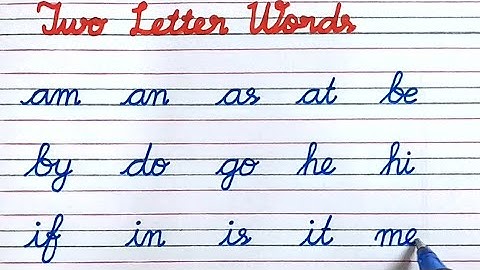 Two Letter Words
am an as at be
by do go he hi
if in is it me